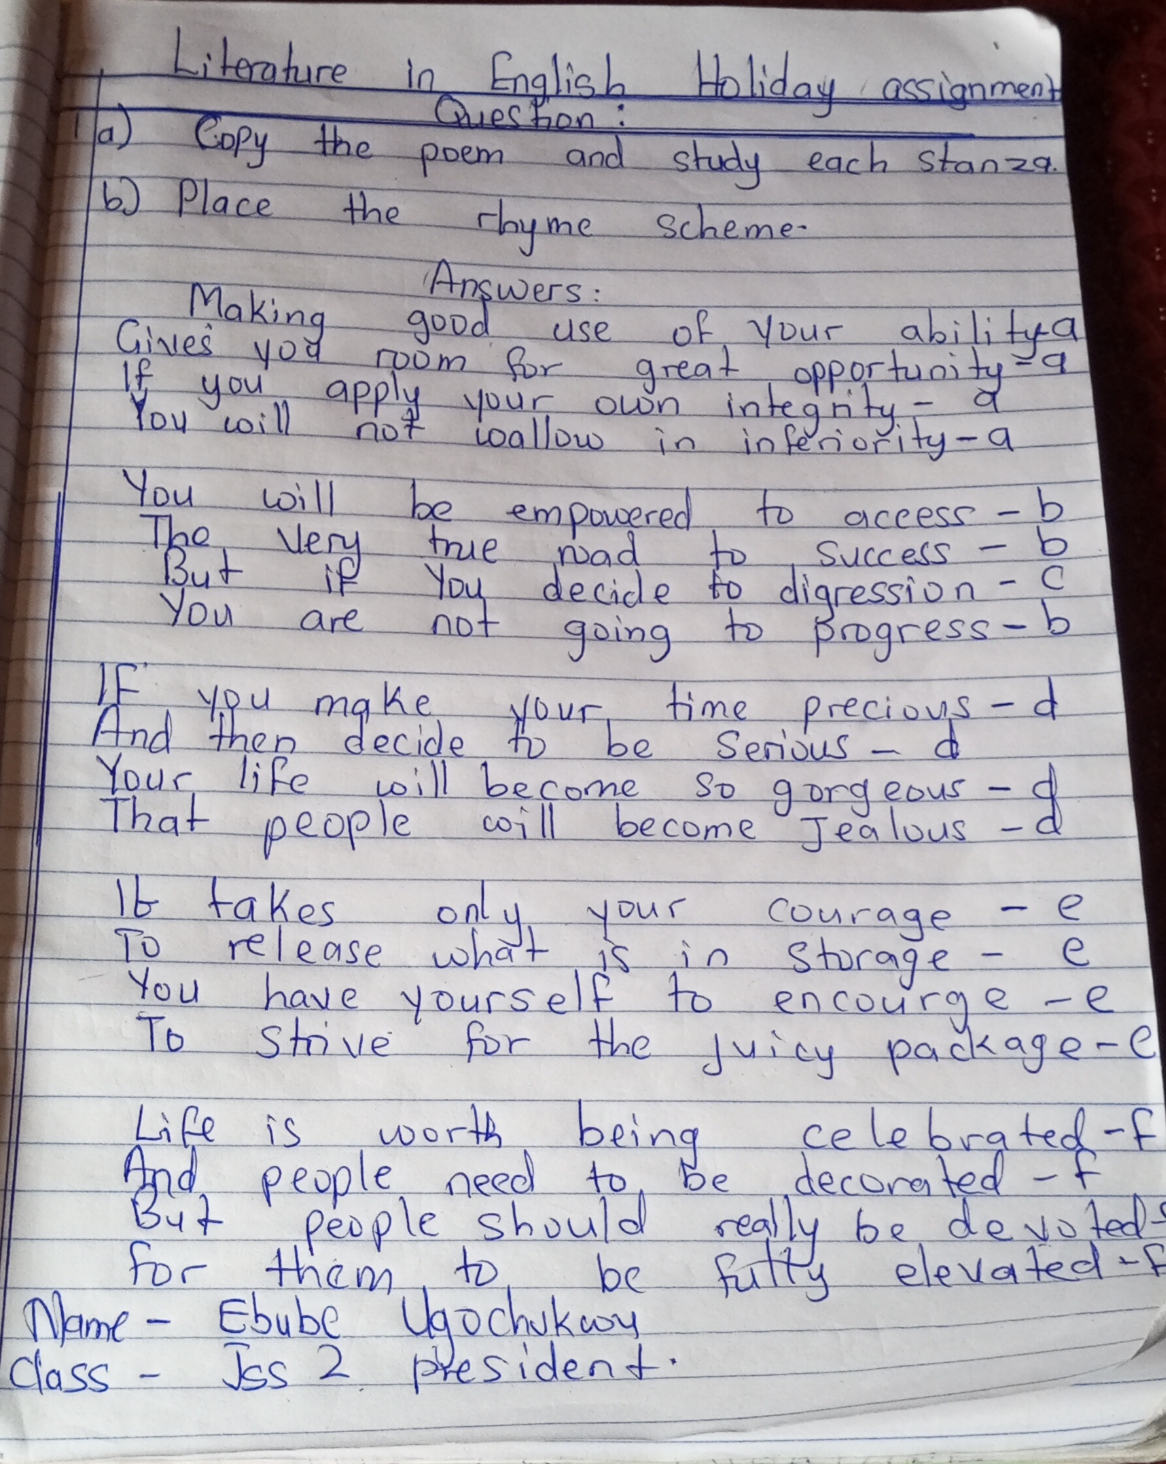 Literature in English Holiday assignment
Question:
1a) Copy the poem and study each stanza.
b) Place the rhyme scheme.
Answers:
Making good use of your ability-a
Gives you room for great opportunity-a
If you apply your own integrity- a
You will not wallow in inferiority-a
You will be empowered to access - b
The very true road to success - b
But if you decide to digression - c
You are not going to progress-b
If you make your time precious-d
And then decide to be serious- d
Your life will become so gorgeous - d
That people will become Jealous -d
It takes only your courage - e
To release what is in storage - e
You have yourself to encourge -e
To strive for the juicy package-e
Life is worth being celebrated-f
And people need to be decorated -f
But people should really be devoted-f
for them to be fully elevated-f
Name - Ebube Ugochukwu
Class - Jss 2 president.